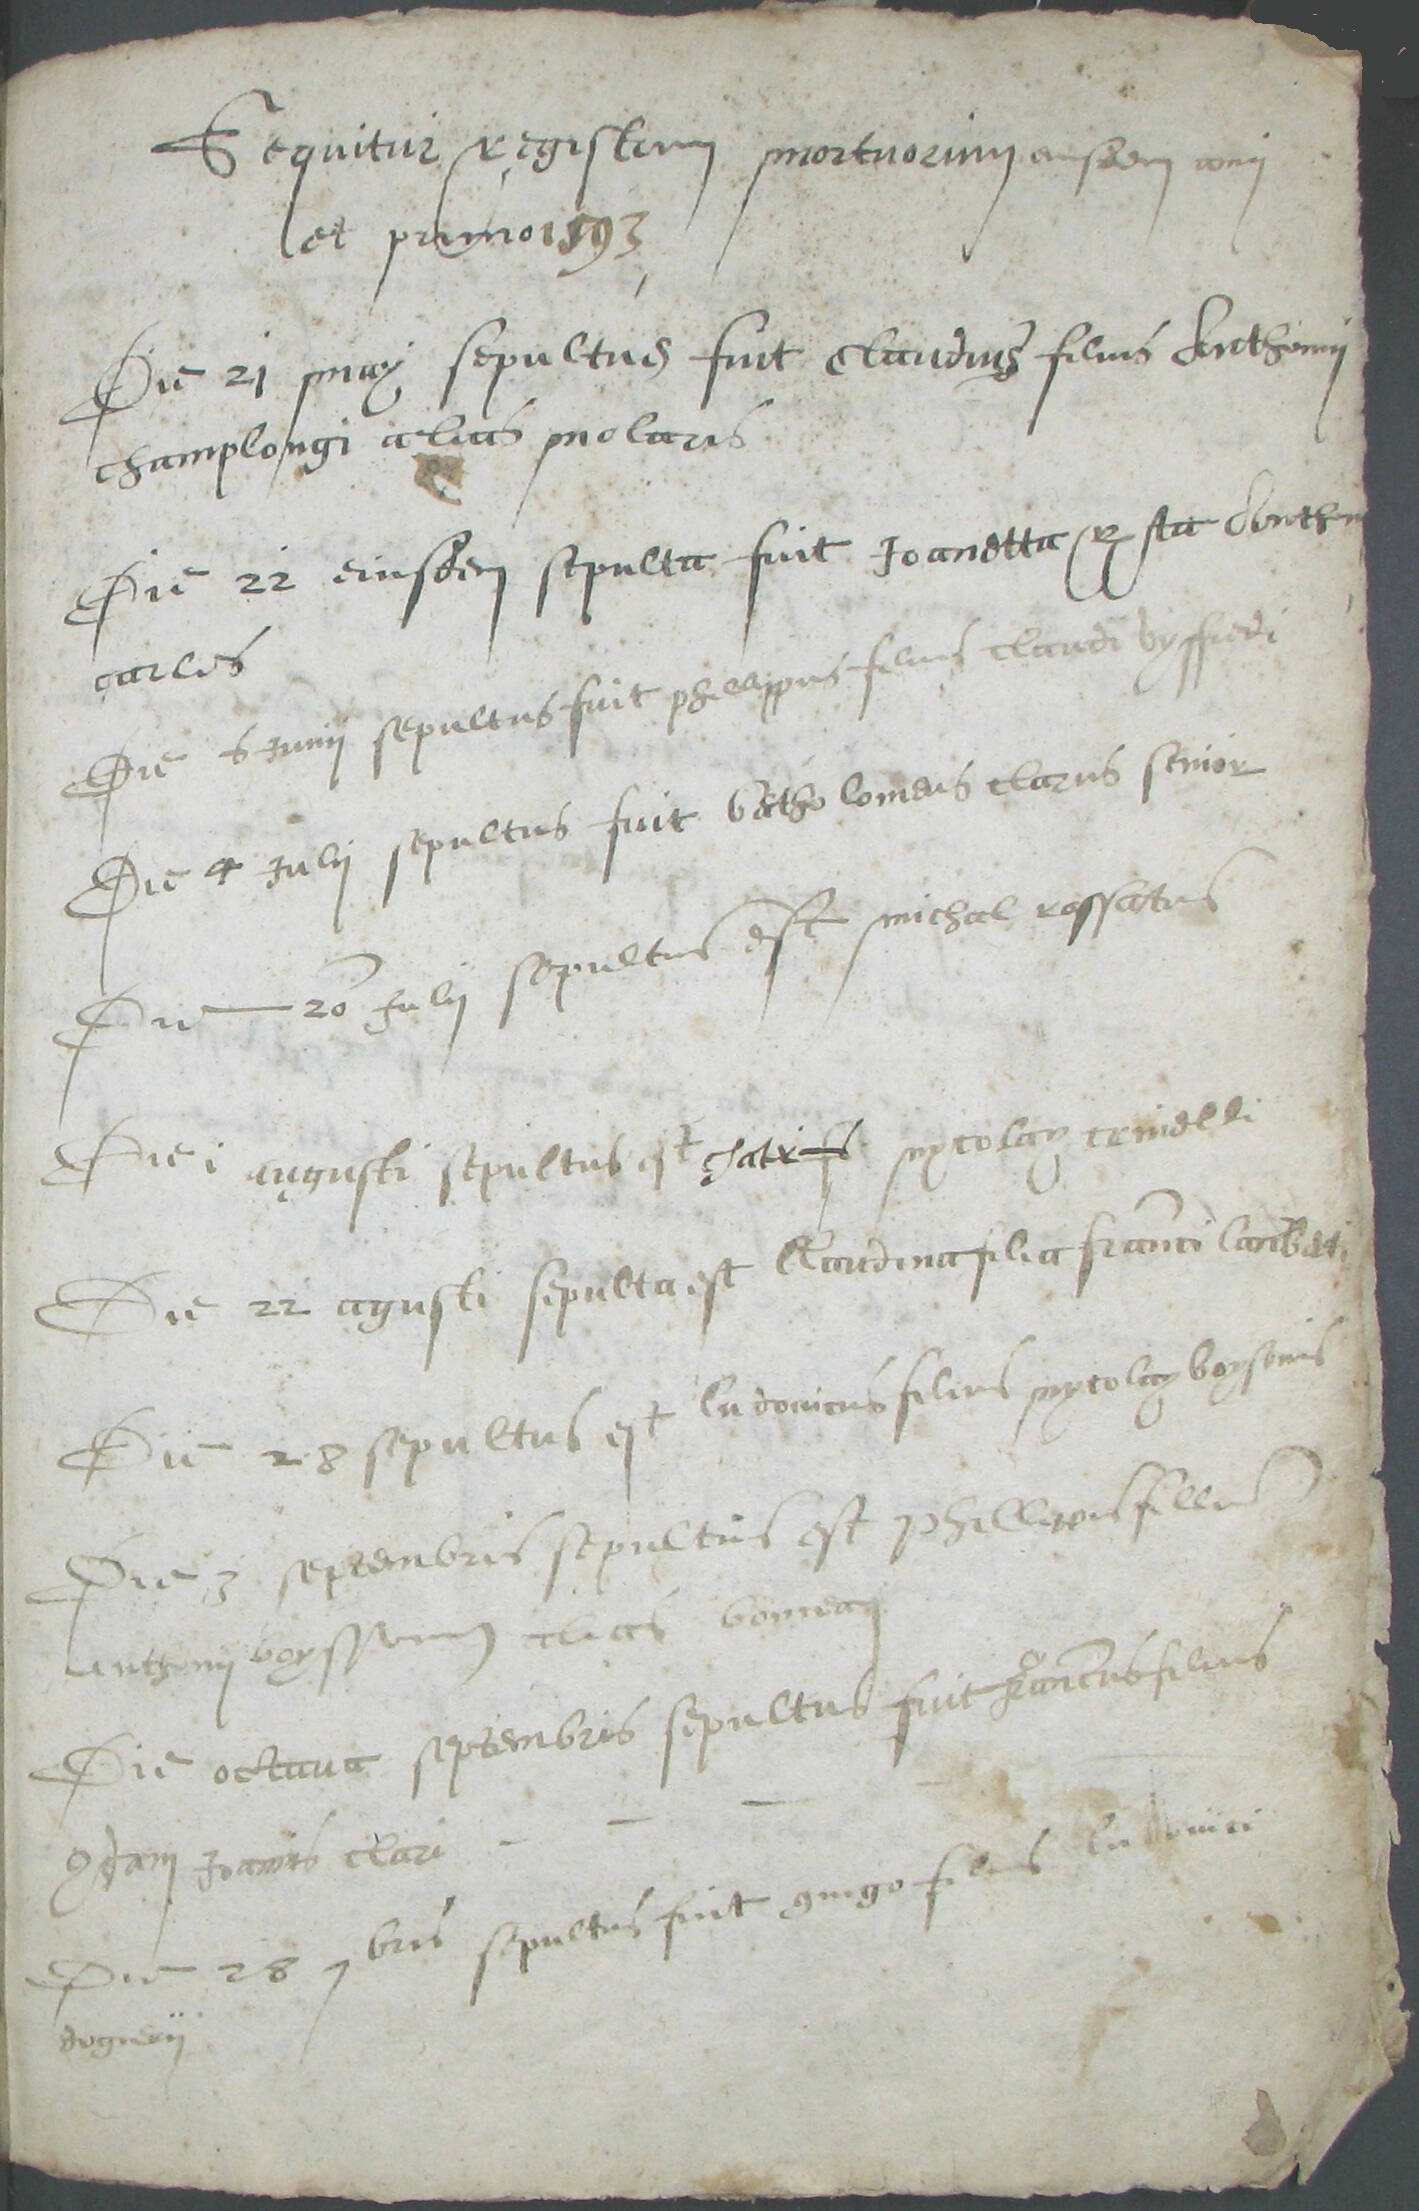 Sequitur registrum mortuorum eiusdem anni
et primo 1593
Die 21 may sepultus fuit Claudius filius Anthonii
champlongi alias molaris
Die 22 eiusdem sepulta fuit Joanetta
carles
Die 6 Junii sepultus fuit phillippus filius claudi
Die 4 Julii sepultus fuit batholomeus clarus senior
Die 20 Julii sepultus est michal rossatus
Die i augusti sepultus est nycolay
Die 22 agusti sepulta est Claudina filia franci lamberti
Die 28 sepultus est ludovicus filius nycolay boysonis
Die 3 septembris sepultus est phillipus fillius
anthonii alias
Die octava septembris sepultus fuit francus filius
qdam Joannis clari
Die 28 7bris sepultus fuit guigo filius ludovici